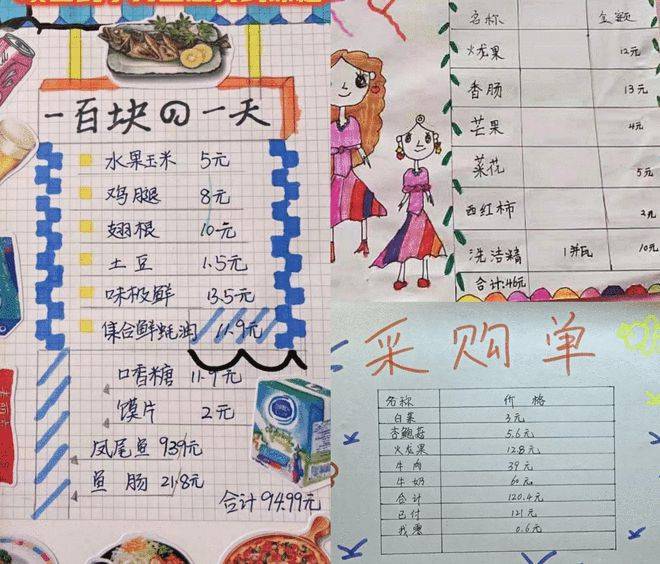 一百块の一天
水果玉米 5元
鸡腿 8元
翅根 10元
土豆 1.5元
味极鲜 13.5元
集合鲜蚝油 11.9元
口香糖 11.9元
馍片 2元
凤尾鱼 9.39元
鱼肠 21.8元
合计94.99元
名称 金额
火龙果 12元
香肠 13元
芒果 4元
菜花 5元
西红柿 2元
洗洁精 1瓶 10元
合计:46元
采购单
名称 价格
白菜 3元
杏鲍菇 5.6元
火龙果 12.8元
牛肉 39元
牛奶 60元
合计 120.4元
已付 121元
找零 0.6元